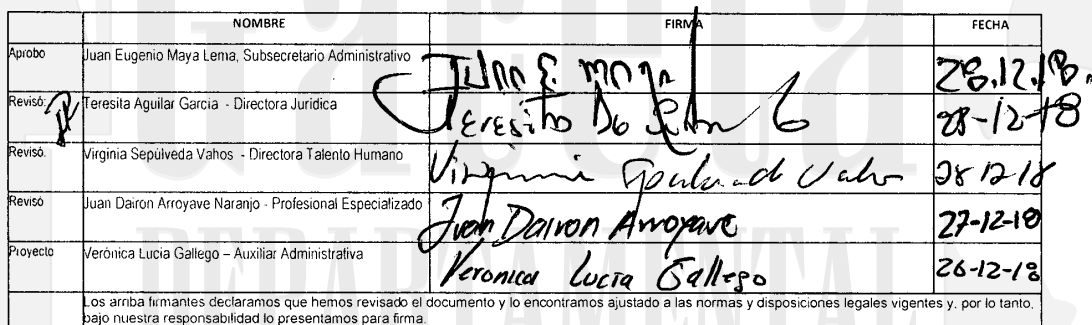 NOMBRE FIRMA FECHA
Aprobo Juan Eugenio Maya Lema, Subsecretario Administrativo Juan E. Maya 28.12.18.
Revisó: Teresita Aguilar Garcia - Directora Juridica Teresita 28-12-18
Revisó. Virginia Sepúlveda Vahos - Directora Talento Humano Virginia 28 12-18
Revisó Juan Dairon Arroyave Naranjo - Profesional Especializado Juan Dairon Arroyave 27-12-18
Proyecto Verónica Lucia Gallego – Auxiliar Administrativa Veronica Lucia Gallego 26-12-18
Los arriba firmantes declaramos que hemos revisado el documento y lo encontramos ajustado a las normas y disposiciones legales vigentes y, por lo tanto,
bajo nuestra responsabilidad lo presentamos para firma.
DEPARTAMENTAL